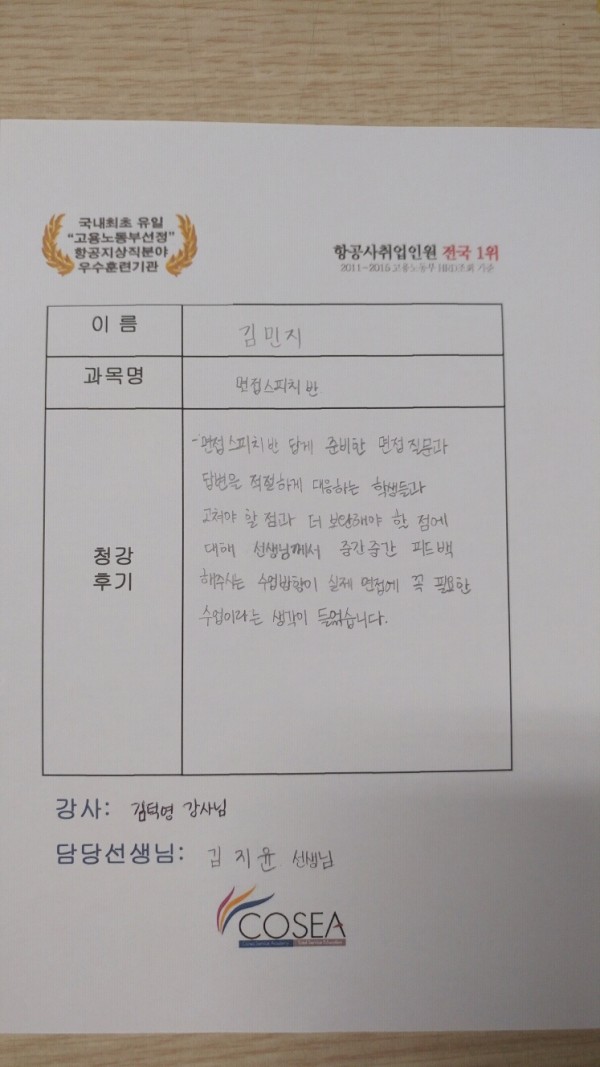 국내최초 유일
"고용노동부선정"
항공지상직분야
우수훈련기관
항공사취업인원 전국 1위
2011~2015 고용노동부 HRD조회 기준
이 름
김민지
과목명
면접스피치반
청강
후기
-면접스피치반 답게 준비한 면접질문과
답변을 적절하게 대응하는 학생들과
고쳐야 할 점과 더 보완해야 할 점에
대해 선생님께서 중간중간 피드백
해주시는 수업방향이 실제 면접에 꼭 필요한
수업이라는 생각이 들었습니다.
강사: 김덕영 강사님
담당선생님: 김지윤 선생님
COSEA